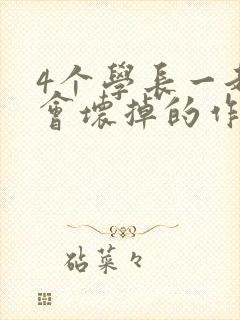 4个學長一
會壞掉的作
砧菜々